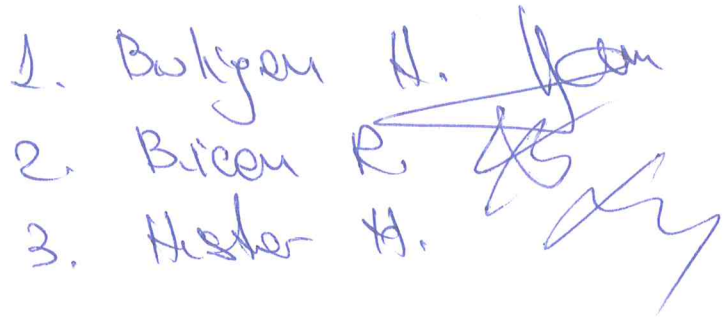 1. Buligan H.
2. Bican R.
3. Hester H.